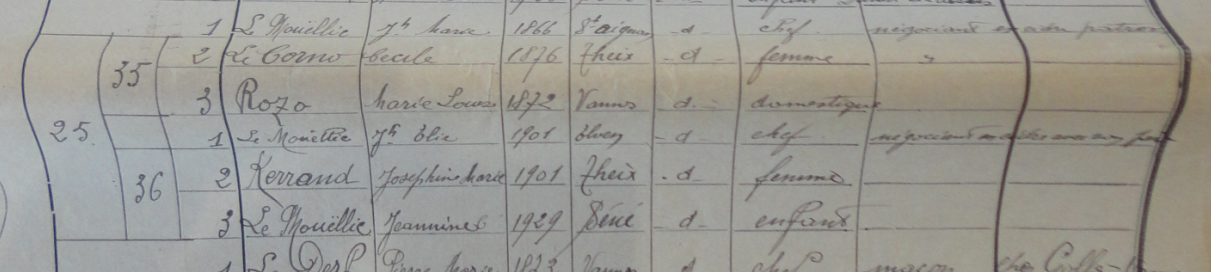 1 Le Mouëllic Jh Marie 1866 St aignan -d- chef négociant patron
35 2 Le Corno Cecile 1876 Theix -d- femme "
3 Rozo Marie Louise 1872 Vannes -d- domestique
25 1 Le Mouëllic Jh Elie 1901 Elven -d- chef négociant
36 2 Kerrand Josephine Marie 1901 Theix -d- femme
3 Le Mouëllic Jeannine 1929 Séné -d- enfant
1 Le Pierre Marie Vannes d chef maçon chez